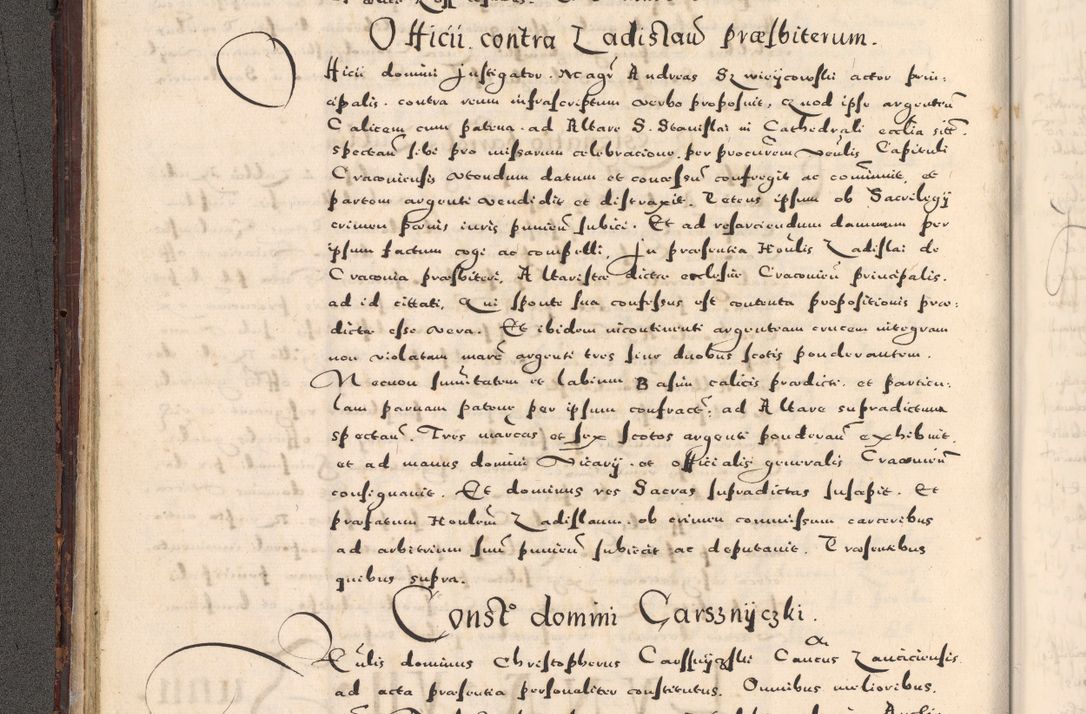 Officii contra Ladislaū præsbiterum.
Officii domini Instigator. Magr̄ Andreas Szwieyjcowski actor prin-
cipalis. contra reum infrascriptum verbo proposuit, Quod ipse argenteū
Calicem cum patena ad Altare S. Stanislai in Cathedrali ecclīa sitt̄.
spectan̄ sibi pro missarum celebratione. per procurem̄ Veñlis Capituli
Cracouiensis vtendum datum et concessū confregit ac com̄inuit, et
partem argenti vendidit et distraxit. Petens ipsum ob Sacrilegij
crimen pœnis iuris puniend̄ subici. Et ad resarciendum damnum per
ipsum factum cogi ac compelli, In præsentia Hon̄lis Ladislai de
Cracouia præsbiteri, Altaristæ dictæ ecclesiæ Cracouien̄ principalis.
ad id cittati, Qui sponte sua confessus est contenta propositionis præ:
dictæ esse vera. Et ibidem incontinenti argenteam crucem integram
non violatam marc̄ argenti tres sine duobus scotis ponderantem.
Necnon sum̄itatem et labium Basim calicis prædicti. et particu:
lam paruam patenæ per ipsum confract̄: ad Altare supradictum
spectan̄. Tres marcas et sex scotos argenti ponderan̄ exhibuit.
et ad manus domini Vicarij et officialis generalis Cracouien̄
consignauit. Et dominus res Sacras supradictas suscepit. Et
præfatum Honlem̄ Ladislaum. ob crimen commissum carceribus
ad arbitrium suū puniend̄ subiecit ac deputauit. Præsentibus
quibus supra.
Const° domini Garsznyczki.
Vn̄lis dominus Christopherus Carssnyczski Cancus Lanciciensis
ad acta præsentia personaliter constitutus. Omnibus melioribus.